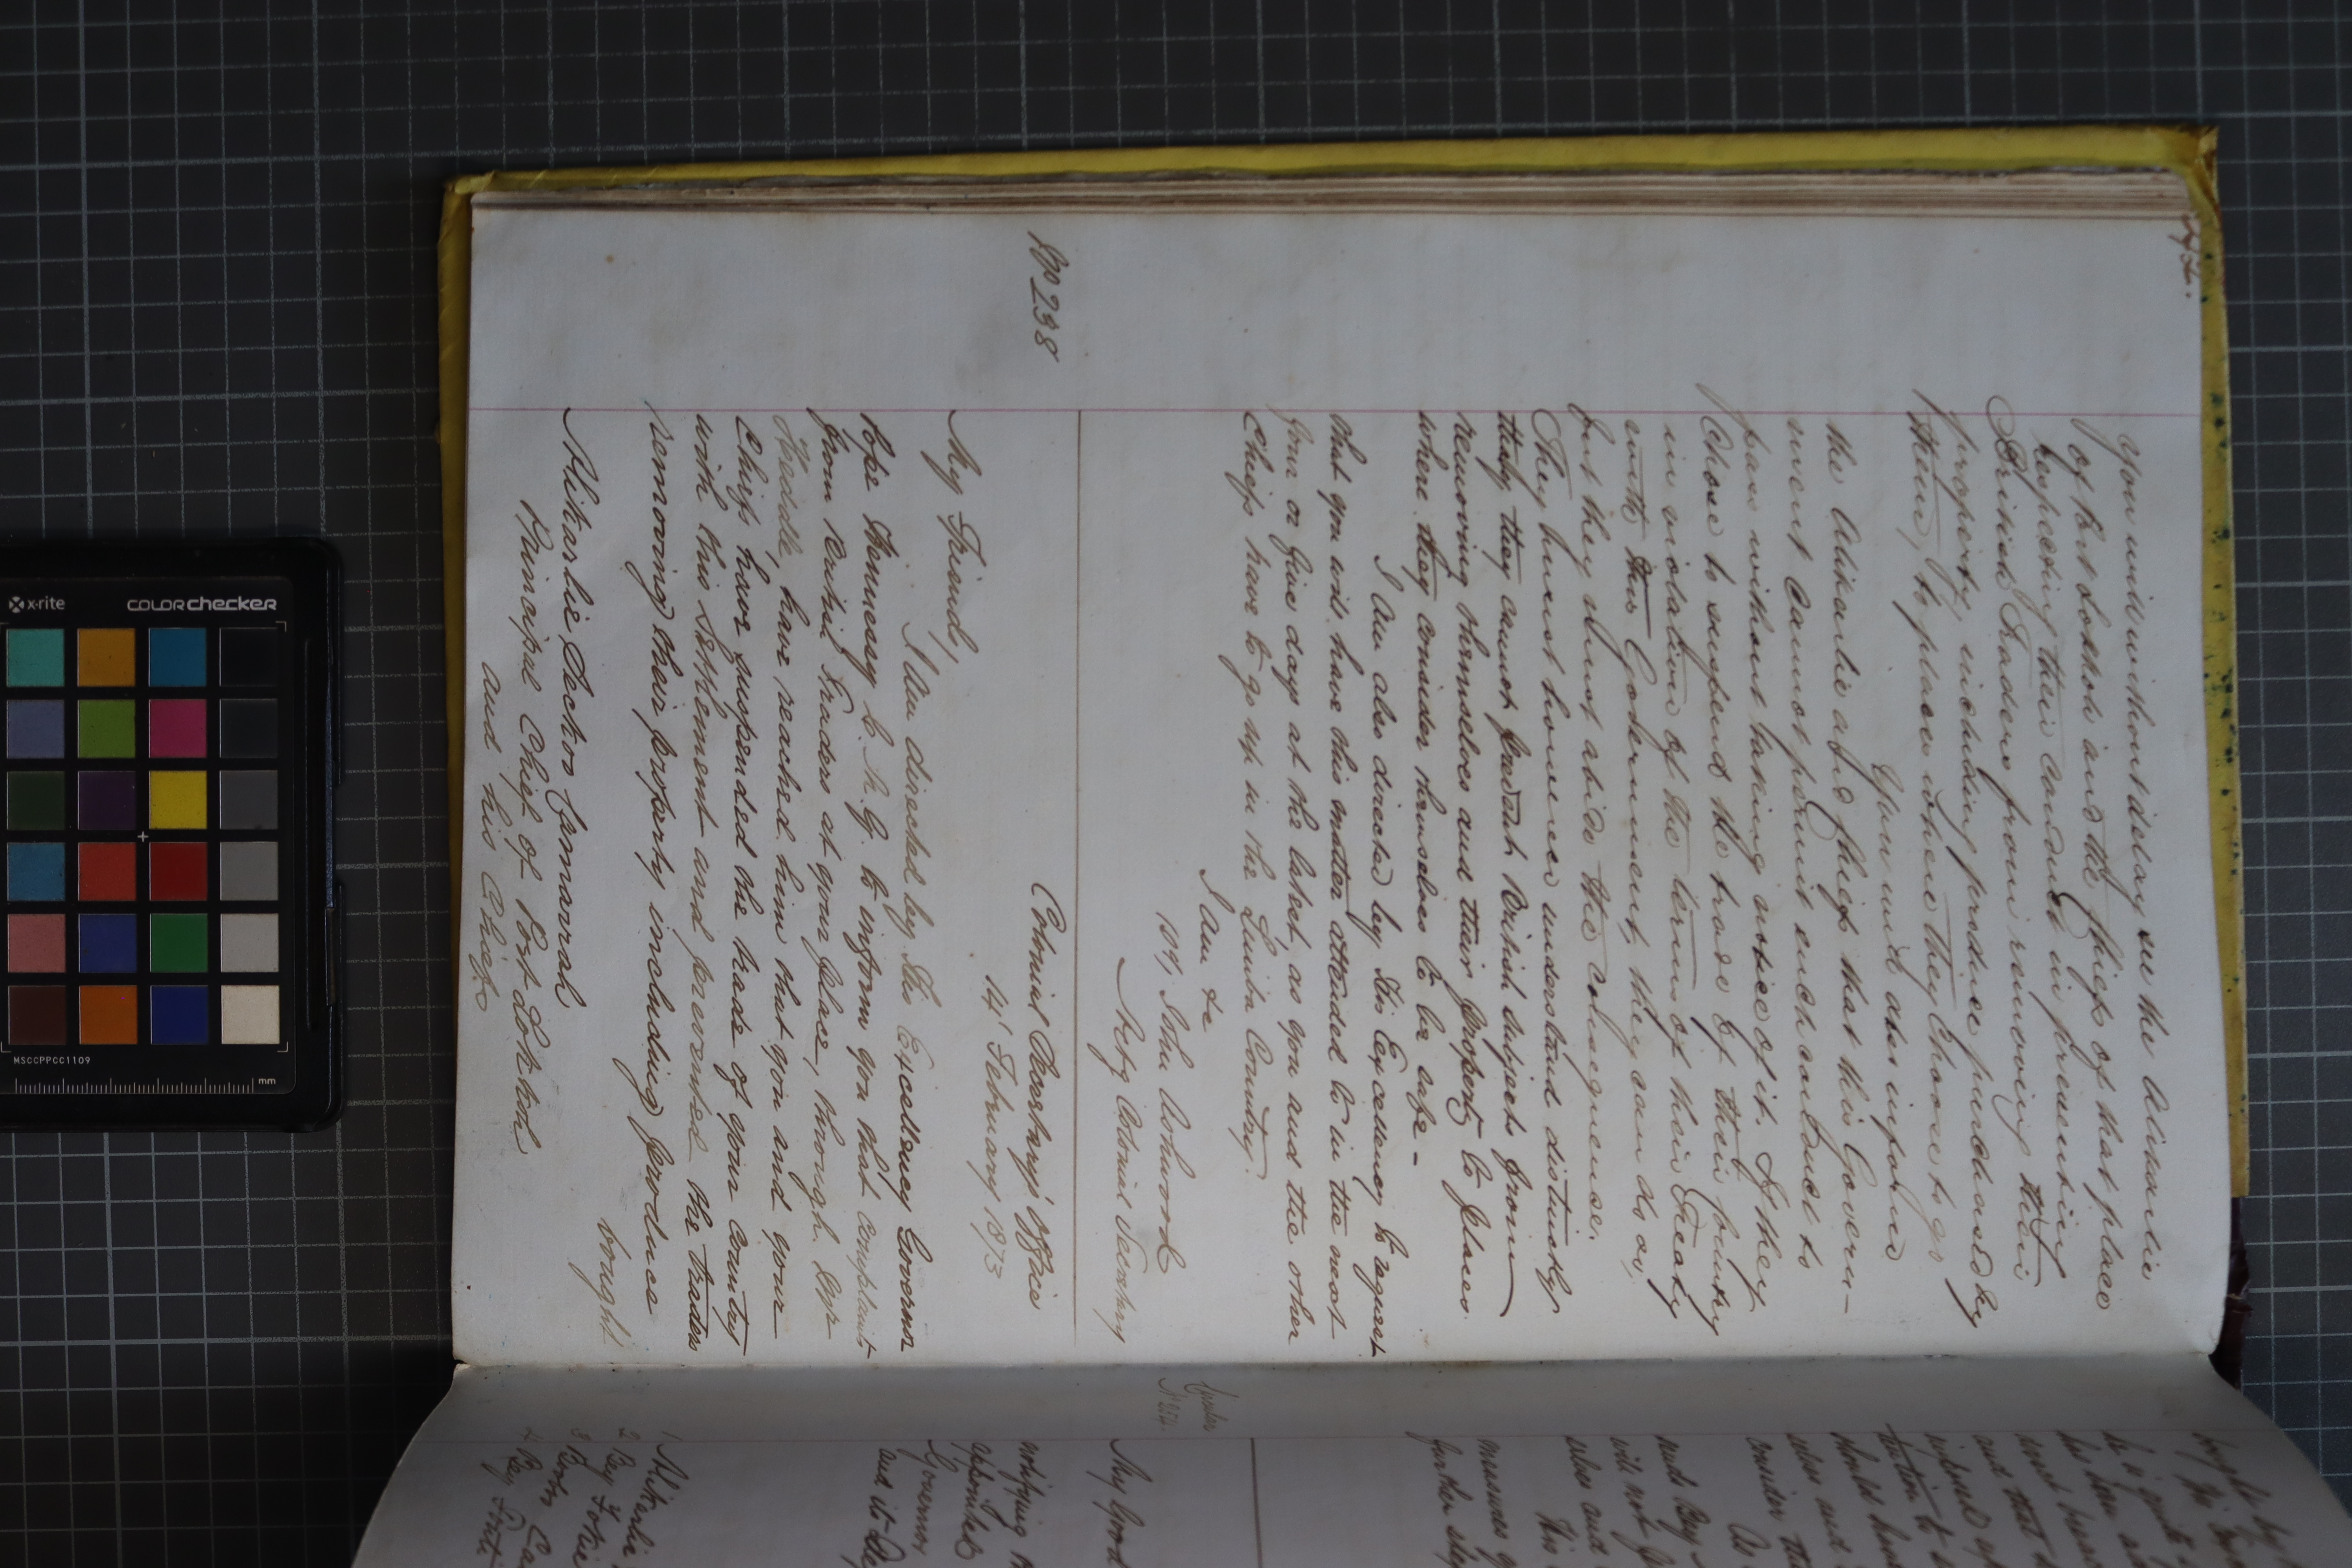 you will without delay see the Alikarlie
of Port Lokkoh and the Chiefs of that place
respecting their conduct in preventing
British Traders from removing their
property, including produce purchased by
them, to places where they choose to go
You will also inform
the Alikarlie and Chiefs that this Govern-
ment cannot permit such conduct to
pass without taking notice of it. If they
chose to suspend the trade of their country
in violation of the terms of their Treaty
with this Government they can do so,
but they must abide the consequence.
They must however understand distinctly
that they cannot prevent British subjects from
removing themselves and their property to places
where they consider themselves to be safe -
I am also directed by His Excellency to request
that you will have this matter attended to in the next
four or five days at the latest, as you and the other
Chiefs have to go up in the Limba Country.
I am &c
John
Actg Colonial Secretary
No 238
Colonial Secretary's Office
14th February 1873
My Friend,
I am directed by His Excellency Governor
Pope Hennessy C.M.G. to inform you that complaints
from British Traders at your place, through Dep
Heddle, have reached him that you and your
Chiefs have suspended the trade of your country
with this Settlement and prevented the traders
removing their property including produce
bought
Alikarlie Sechoo
Principal Chief of Port Lokkoh
and his Chiefs
My Good
notifying
appointed
Governor
1 Alikarlie
measures
further
will not
This
consider
should
and that
has been
bought by